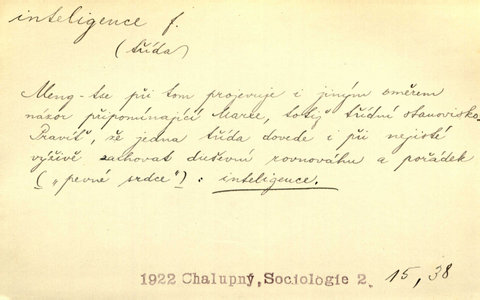 inteligence f.
(třída)
Meng-tse při tom projevuje i jiným směrem
názor připomínající Marxe, totiž třídní stanovisko.
Pravíť, že jedna třída dovede i při nejisté
výživě zachovat duševní rovnováhu a pořádek
("pevné srdce"): inteligence.
1922 Chalupný, Sociologie 2. 15, 38